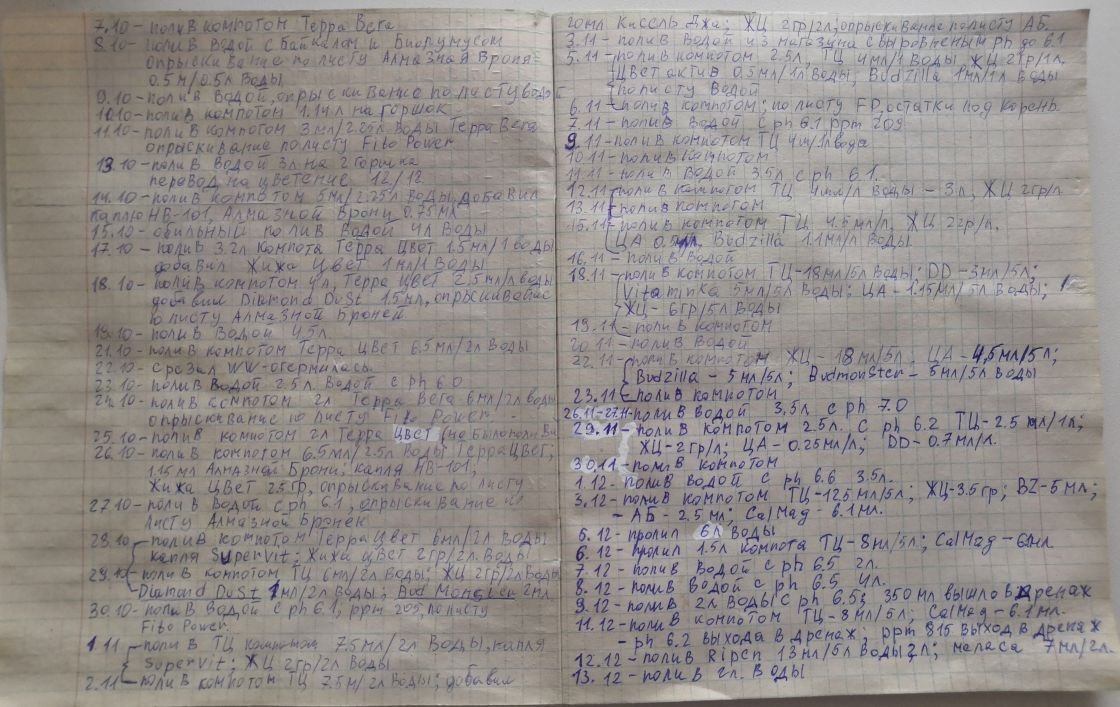 7.10 - полив компотом Терра Вега
8.10 - полив водой с байкалом и Биогумусом
опрыскивание по листу Алмазная Броня -
0.5 м/0.5л воды
9.10 - полив водой, опрыскивание по листу водой
10.10 - полив компотом 1.14 л на горшок
11.10 - полив компотом 3 мл/2.25л воды Терра Вега
опрыскивание по листу Fito Power
13.10 - полив водой 3л на 2 горшка
перевод на цветение 12/12
14.10 - полив компотом 5мл/2.25л воды, добавил
каплю НВ-101, Алмазной Брони 0.75мл
15.10 - обильный полив водой 4л воды
17.10 - полив 3.2л компота Терра Цвет 1.5мл/1 воды
добавил Жижа Цвет 1 мл/1 воды
18.10 - полив компотом 4л, Терра Цвет 2.5мл/л воды
добавил Diamond Dust 1.5мл, опрыскивание
по листу Алмазной Броней
19.10 - полив водой 4.5л
21.10 - полив компотом Терра Цвет 6.5мл/2л воды
22.10 - срезал WW-
23.10 - полив водой 2.5л. водой с ph 6.0
24.10 - полив компотом 2л Терра Вега 6мл/2л воды
опрыскивание по листу Fito Power.
25.10 - полив компотом 2л Терра Цвет (не было
26.10 - полив компотом 6.5мл/2.5л воды Терра Цвет,
1.15мл Алмазной Брони; капля НВ-101;
Жижа Цвет 2.5гр, опрыскивание по листу
27.10 - полив водой с ph 6.1, опрыскивание по
листу Алмазной Броней
28.10 - полив компотом Терра Цвет 6мл/2л воды
капля Supervit; Жижи цвет 2гр/2л. воды
29.10 - полив компотом ТЦ 6мл/2л воды; ЖЦ 2гр/2л воды
Diamond Dust 1мл/2л воды; Bud Monster 2мл.
30.10 - полив водой с ph 6.1, ppm 205, по листу
Fito Power.
1.11 - полив ТЦ компотом 7.5мл/2л воды, капля
Supervit; ЖЦ 2гр/2л воды
2.11 - полив компотом ТЦ 7.5м/2л воды; добавил
20мл Кисель Джа; ЖЦ 2гр/2л; опрыскивание по листу АБ.
3.11 - полив водой из магазина с выровненным ph до 6.1
5.11 - полив компотом 2.5л, ТЦ 4мл/1 воды, ЖЦ 2гр/1л.
Цвет актив 0.5мл/1л воды; Budzilla 1мл/1л воды
по листу водой
6.11 - полив компотом; по листу FP, остатки под корень
7.11 - полив водой с ph 6.1 ppm 209
9.11 - полив компотом ТЦ 4мл/1л вода
10.11 - полив компотом
11.11 - полив водой 3.5л с ph 6.1.
12.11 - полив компотом ТЦ 4мл/л воды - 3л, ЖЦ 2гр/л.
13.11 - полив компотом
15.11 - полив компотом ТЦ 4.5 мл/л, ЖЦ 2гр/л.
ЦА 0.5мл, Budzilla 1.1мл/л воды
16.11 - полив водой
18.11 - полив компотом ТЦ-18мл/5л воды; DD-3мл/5л;
Vitaminka 5мл/5л воды; ЦА-1.15мл/5л воды;
ЖЦ-6гр/5л воды
19.11 - полив компотом
20.11 - полив водой
22.11 - полив компотом ЖЦ-18мл/5л; ЦА-4,5мл/5л;
Budzilla - 5мл/5л; Budmonster - 5мл/5л воды
23.11 - полив компотом
26.11-27.11 - полив водой 3,5л. с ph 7.0
29.11 - полив компотом 2.5л. с ph 6.2 ТЦ-2.5мл/1л;
ЖЦ-2гр/л; ЦА-0.25мл/л; DD-0.7мл/л.
30.11 - полив компотом
1.12 - полив водой с ph 6.6 3.5л.
3.12 - полив компотом ТЦ-12.5мл/5л; ЖЦ-3.5гр; BZ-5мл;
- АБ-2.5мл; CalMag-6.1мл.
5.12 - пролил 6л воды
6.12 - пролил 1.5л компота ТЦ-8мл/5л; CalMag-6.1мл
7.12 - полив водой с ph 6.5 2л.
8.12 - полив водой с ph 6.5 4л.
9.12 - полив 2л воды с ph 6.5; 350мл вышло в дренаж
11.12 - полив компотом ТЦ-8мл/5л; CalMag-6.1мл.
- ph 6.2 выхода в дренаж, ppm 815 выход в дренаж
12.12 - полив Ripen 13мл/5л воды 2л; меласа 7мл/2л.
13.12 - полив 2л. воды